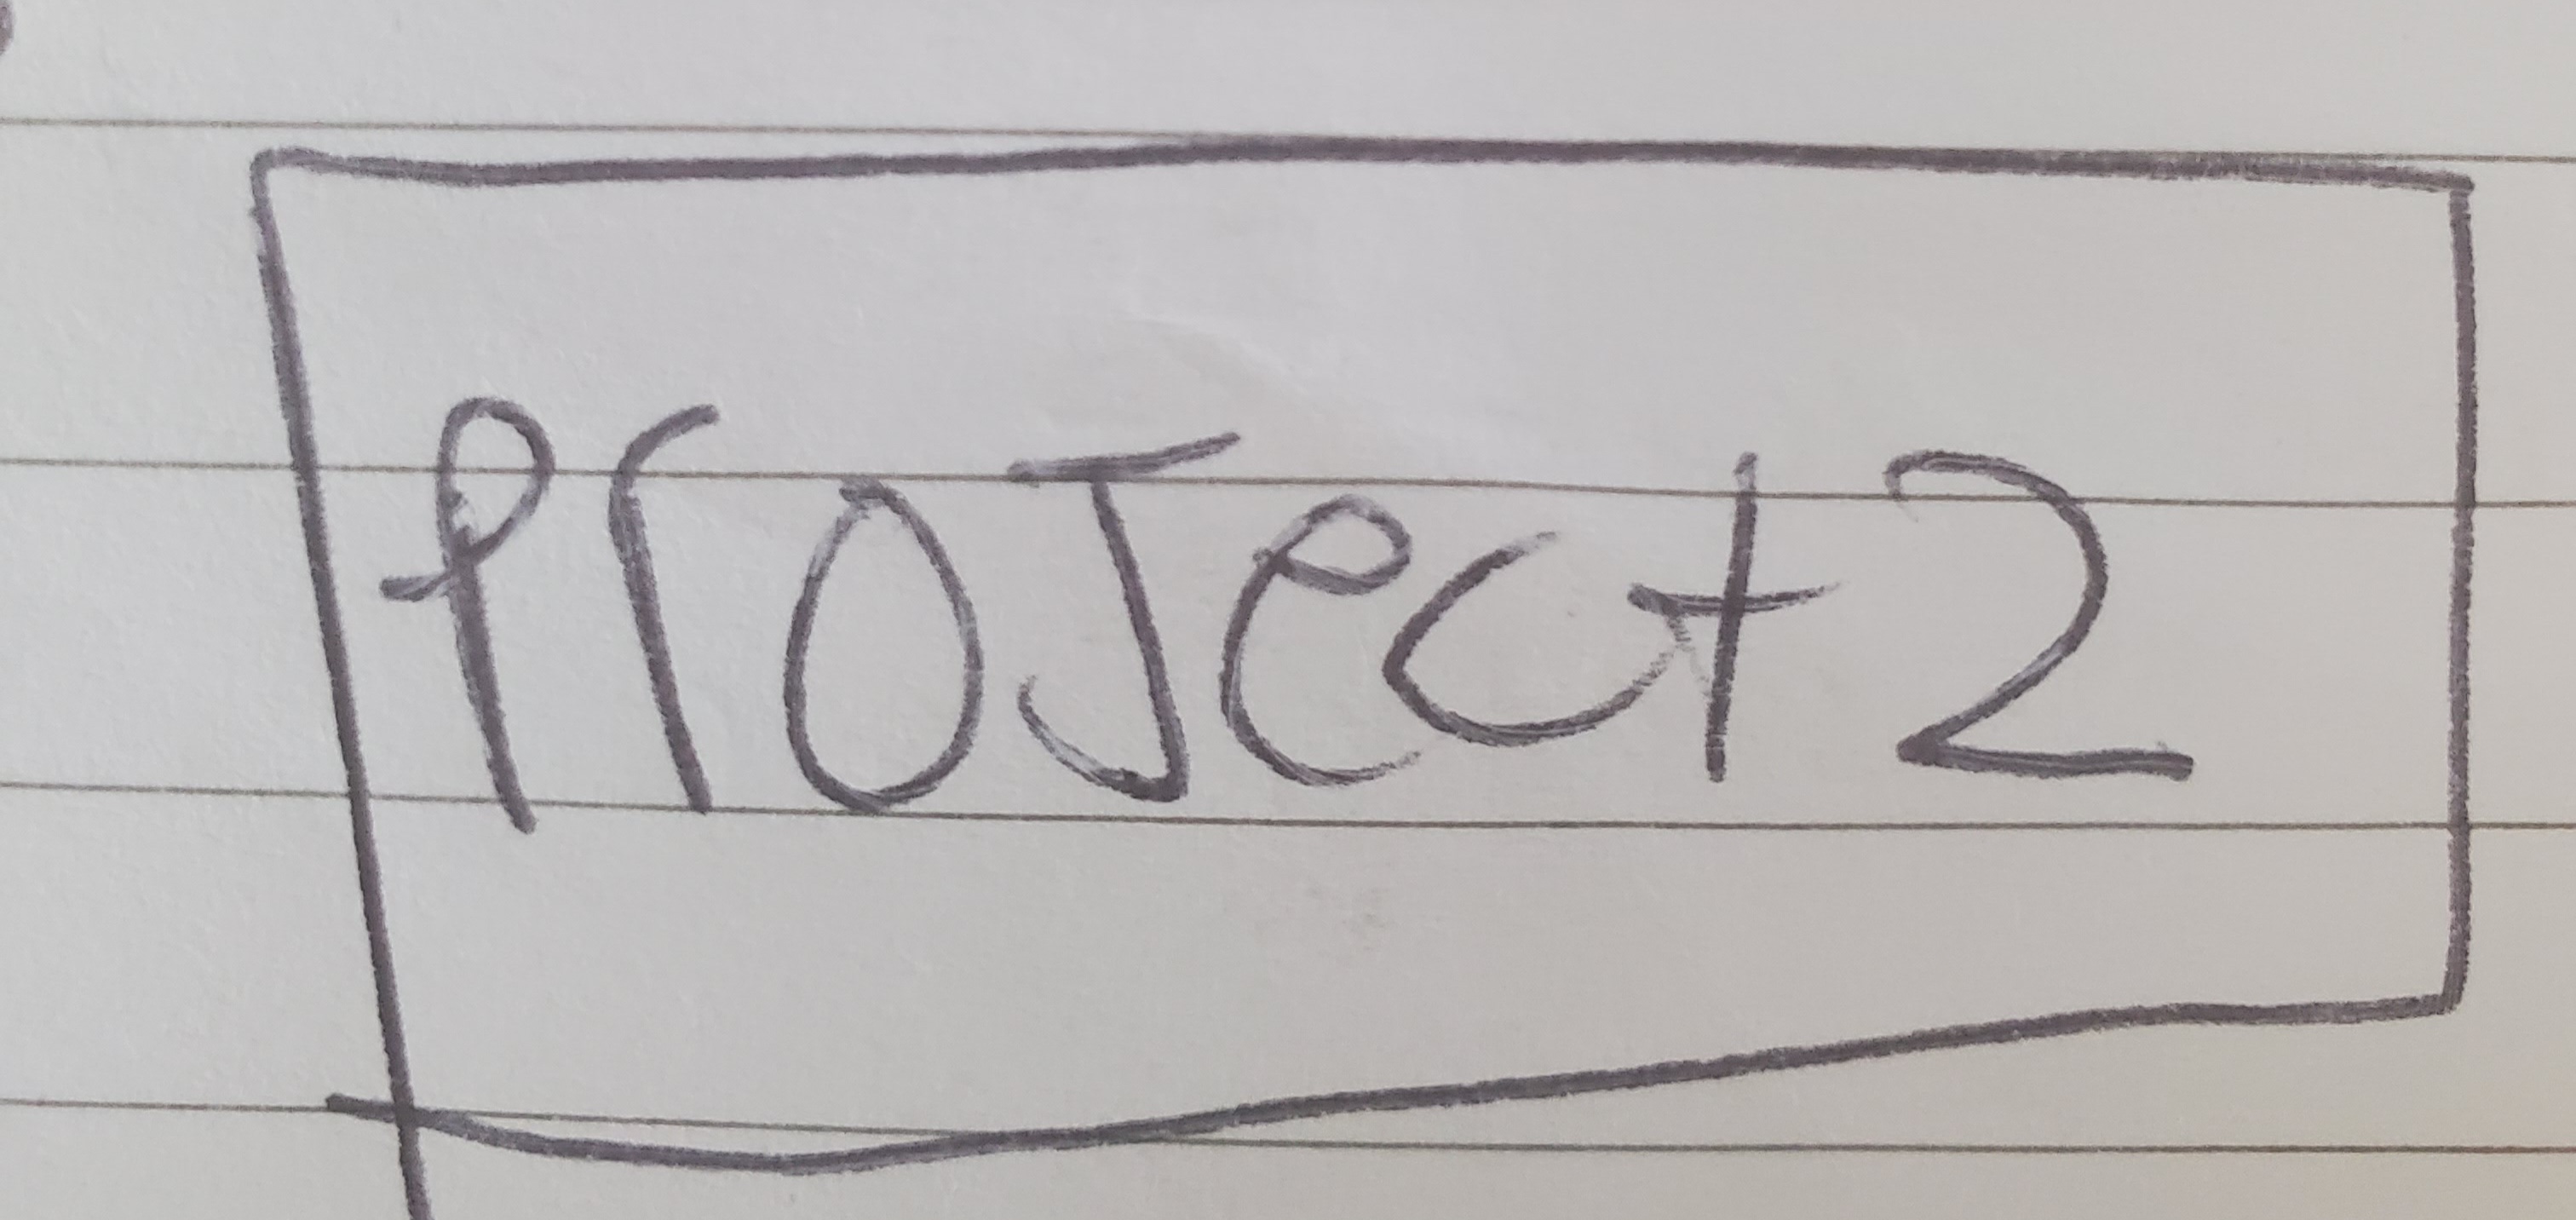 ProJect 2